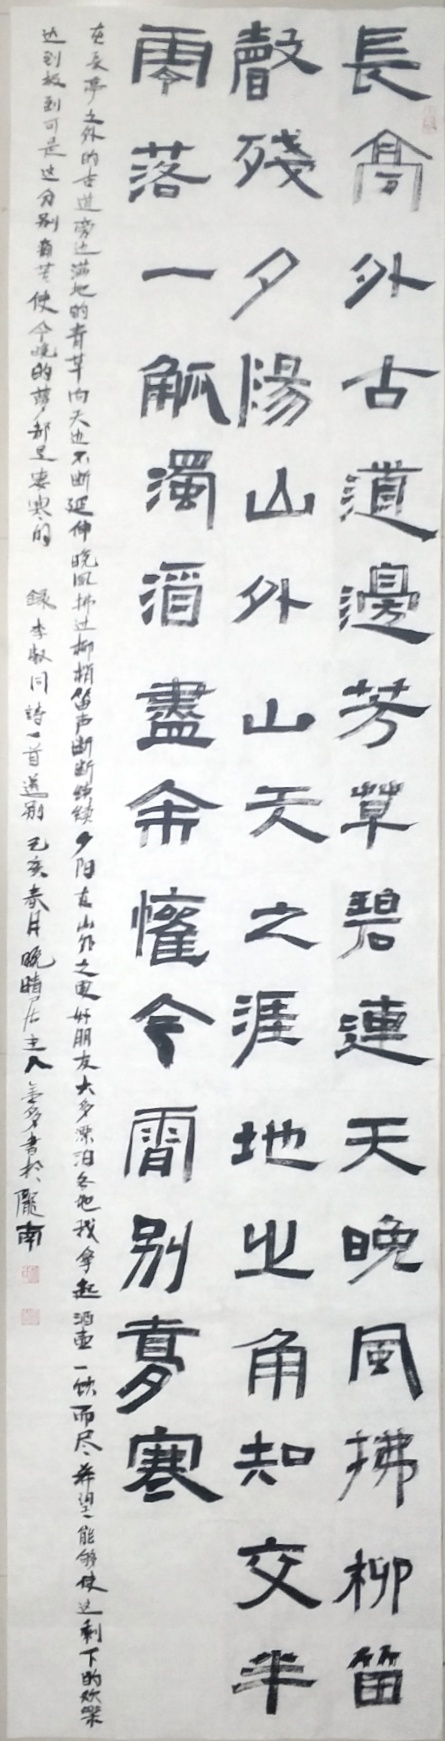 長亭外古道邊芳草碧連天晚風拂柳笛
聲殘夕陽山外山天之涯地之角知交半
零落一觚濁酒盡余懽今宵別夢寒
在長亭之外的古道旁边满地的青草向天边不断延伸晚风拂过柳梢笛声断断续续夕阳在山外之更好朋友大多漂泊各地我拿起酒壶一饮而尽希望能够使这剩下的欢樂
达到极到可是这分别着苦使今晚的夢都是凄寒的 録李叔同詩一首送别 己亥春月晚晴居主人 書於隴南